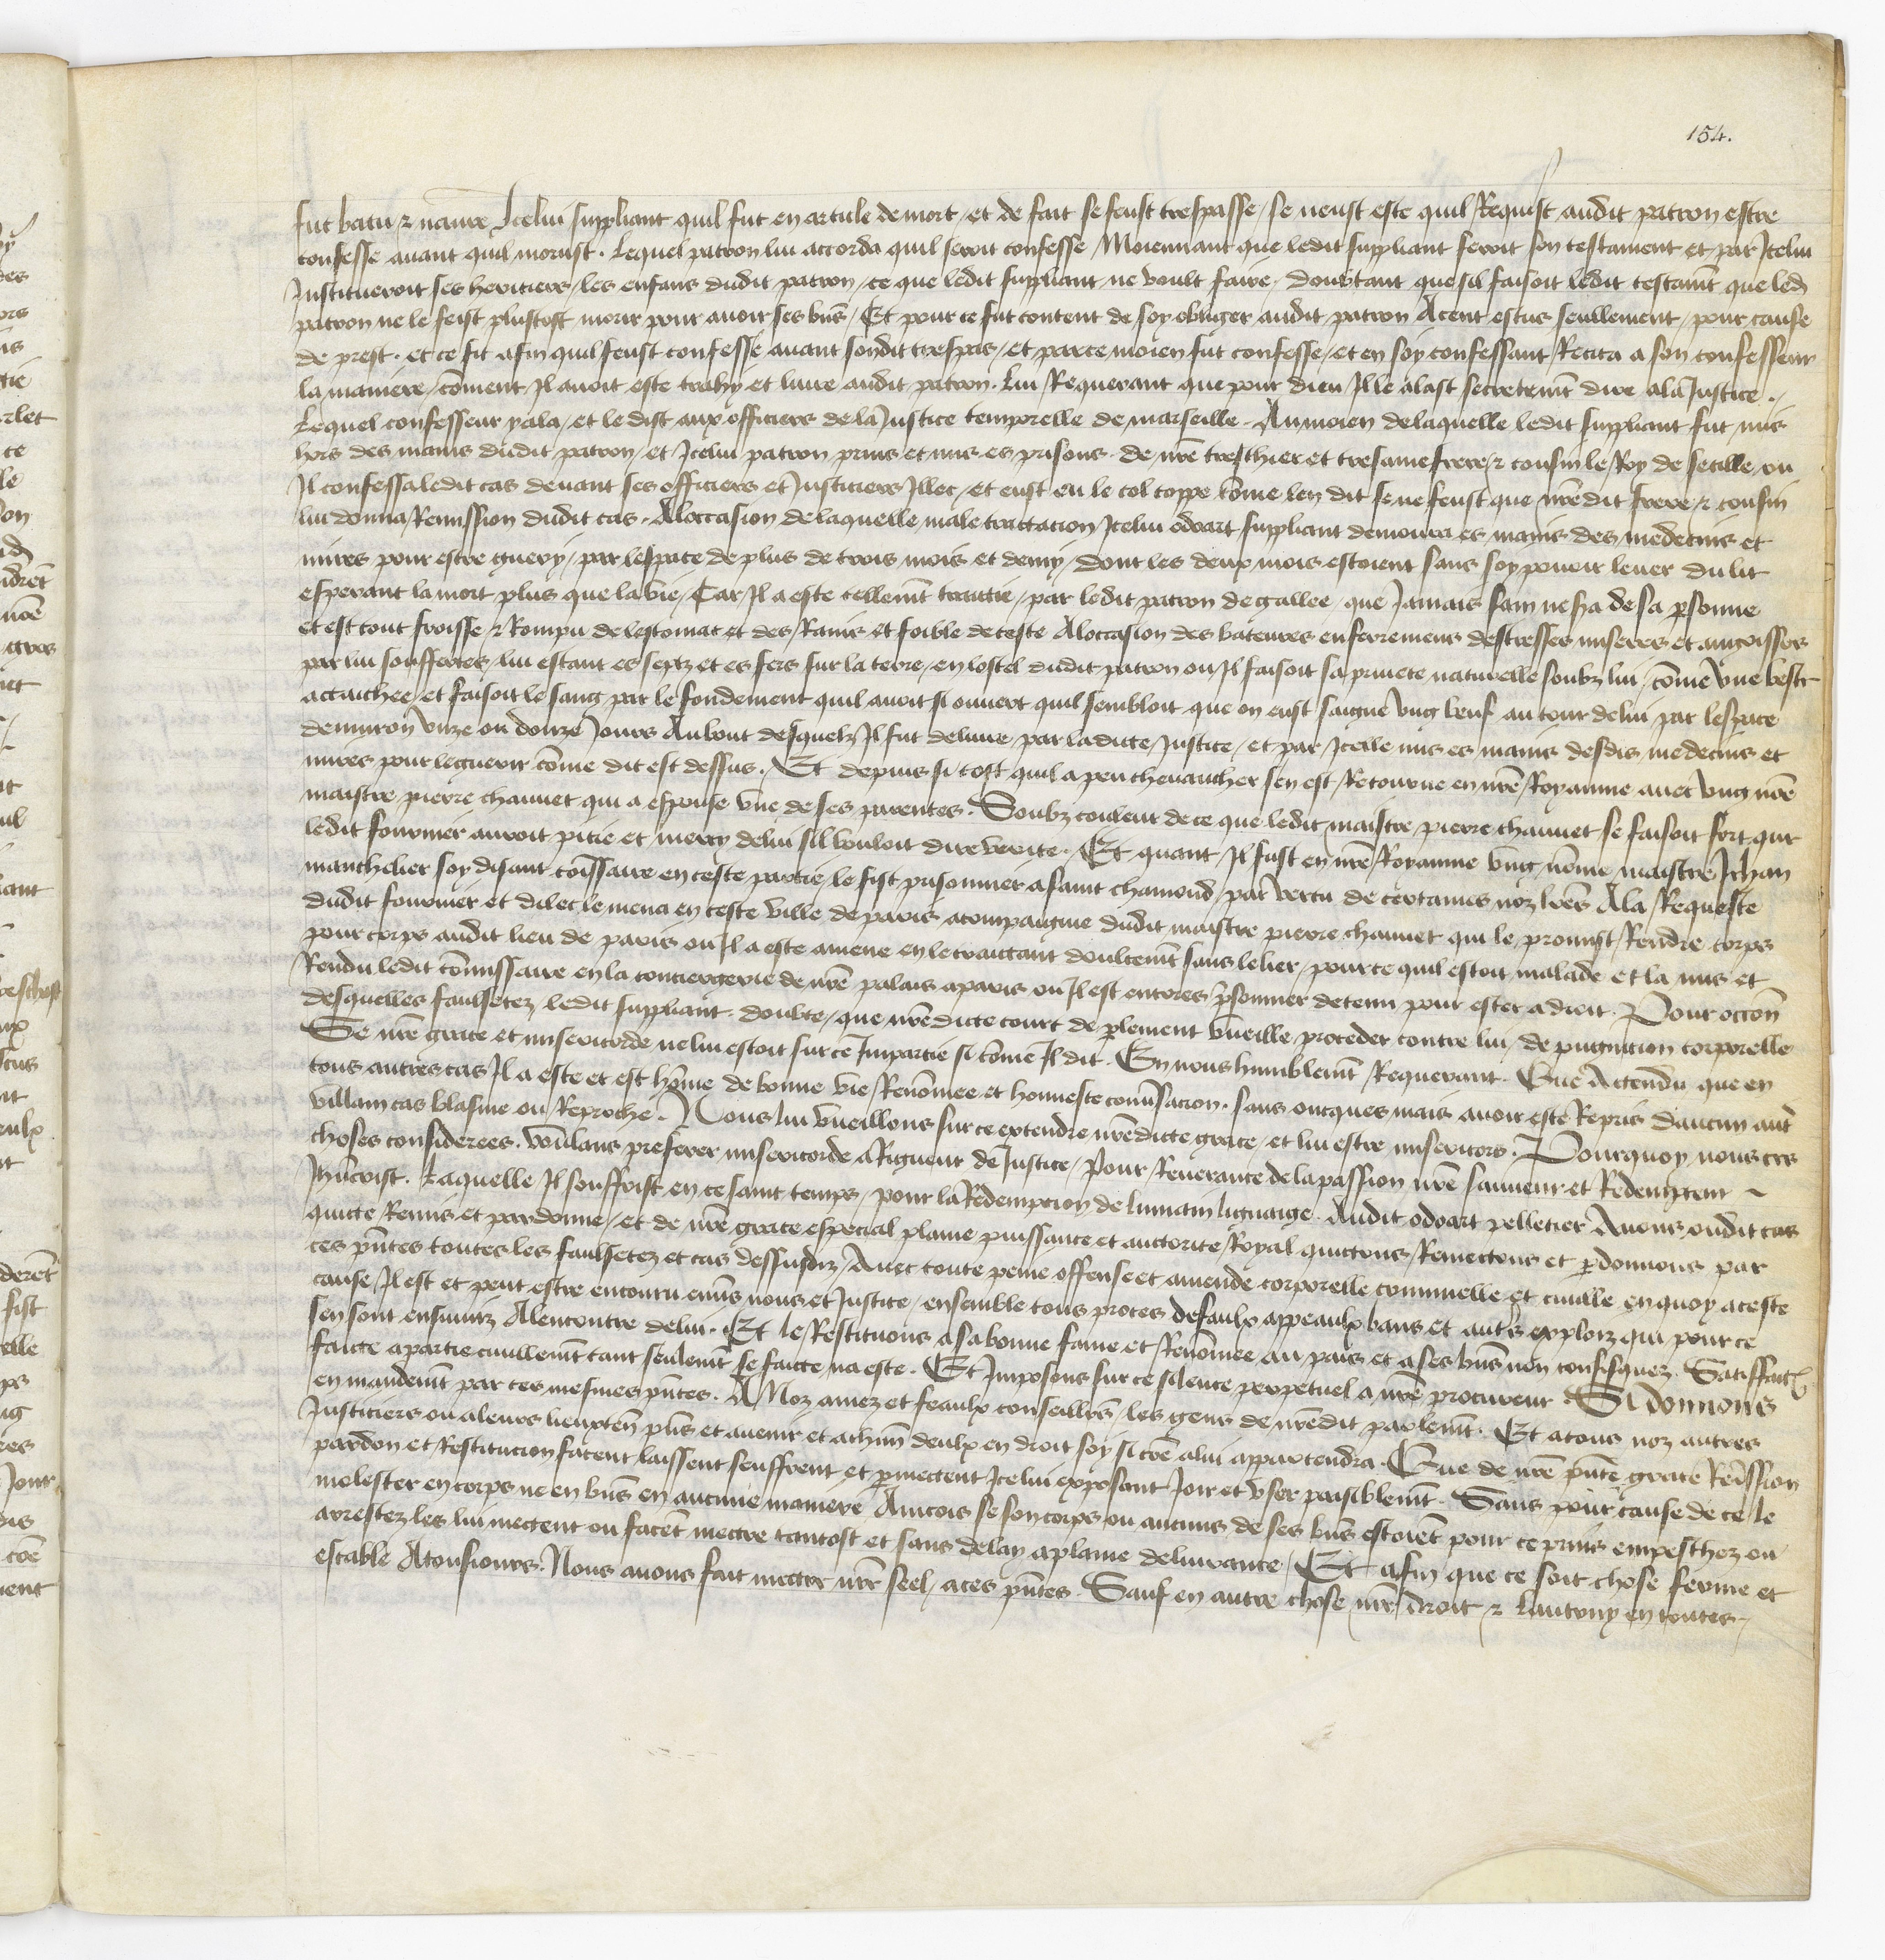 154.
fut batu & navré Icelui suppliant quil fut en article de mort / et de fait se feust trespasse / se neust este quil Requist audit patron estre
confesse avant quil morust. Lequel patron lui accorda quil seroit confesse Moiennant que ledit suppliant feroit son testament et par Icelui
Institueroit ses heritiers / les enfans dudit patron / ce que ledit suppliant ne voult faire / doubtant que sil faisoit ledit testamt que led
patron ne le feist plustost morir pour avoir ses bns / Et pour ce fut content de soy obliger audit patron A cent escus seullement / pour cause
de prest. et ce fit afin quil feust confesse avant sondit trespas / et par ce moien fut confesse / et en soy confessant Recita a son confesseur
la maniere / coment Il avoit este trahy et livre audit patron. Lui Requerant que pour dieu Il le alast secretemt dire a la Justice.
Lequel confesseur y ala / et le dist aux officiers de la Justice temporelle de marseille. Au moien de laquelle ledit suppliant fut mis
hors des mains dudit patron / et Icelui patron prins et mis es prisons de nre treschier et tresame frere & cousin le Roy de secille / ou
Il confessa ledit cas devant ses officiers et Justiciers Illec / et eust eu le col coppe come len dit se ne feust que nredit frere & cousin
lui donna Remission dudit cas. A loccasion de laquelle male tractacion Icelui odoart suppliant demoura es mains des medecins et
mires pour estre guery / par lespace de plus de trois mois et demy / dont les deux mois estoient sans soy povoir lever du lit
esperant la mort plus que la vie / Car Il a este tellemt traictie / par ledit patron de gallee / que Jamais sain ne sra de sa psonne
et est tout froisse & Rompu de lestomac et des Rains et foible de teste A loccasion des bateures enferremens destresses miseres et angoisses
par lui souffertes / lui estant es septz et es fers sur la terre / en lostel dudit patron ou Il faisoit sa privete naturelle soubz lui / come vne beste
attaichee / et faisoit le sang par le fondement quil avoit si ouvert quil sembloit que on eust saigne vng beuf au tour de lui par lespace
denviron vnze ou douze Jours Au bout desquelz Il fut delivre par ladicte Justice / et par Icelle mis es mains desdis medecins et
mires pour le guerir come dit est dessus. Et depuis si tost quil a peu chevaucher sen est Retourne en nre Royaume avec vng nome
maistre pierre chauvet qui a espouse vne de ses parentes. Soubz couleur de ce que ledit maistre pierre chauvet se faisoit fort que
ledit fournier auroit pitie et mercy de lui sil vouloit dire verite. Et quant Il fust en nre Royaume vng nome maistre Jehan
manchelier soy disant comissaire en ceste partie / le fist prisonnier a saint chamond par vertu de certaines noz lres A la Requeste
dudit fournier et dilec le mena en ceste ville de paris acompaigne dudit maistre pierre chauvet qui le promist Rendre corps
pour corps audit lieu de paris ou Il a este amene en le traictant doulcemt sans le lier / pource quil estoit malade et la mis et
Rendu ledit comissaire en la conciergerie de nre palais a paris ou Il est encores prisonnier detenu pour ester a droit. Pour occon
desquelles faulsetez ledit suppliant doubte / que nredicte court de plement vueille proceder contre lui / de pugnicion corporelle
Se nre grace et misericorde ne lui estoit sur ce Impartie si come Il dit. En nous humblemt Requerant. Que Actendu que en
tous autres cas Il a este et est home de bonne vie / Renomee et honneste convsacion. sans oncques mais avoir este Repris daucun aut
villain cas blasme ou Reproche. Nous lui vueillons sur ce extendre nredicte grace / et lui estre misericors. Pourquoy nous ces
choses considerees. voulans preferer misericorde a Rigueur de Justice / Pour Reverance de la passion nre sauveur et Redempteur
Jhucrist. Laquelle Il souffrist en ce saint temps / pour la Redempcion de lumain lignaige. Audit odoart pelletier Avons oudit cas
quicte Remis et pardonne / et de nre grace especial plaine puissance et auctorite Royal quictons Remectons et pdonnons par
ces pntes toutes les faulsetez et cas dessusdiz / Avec toute peine offense et amende corporelle criminelle et civile en quoy a ceste
cause Il est et peut estre encouru envs nous et Justice / ensemble tous proces defaulx appeaulx bans et auts exploiz qui pour ce
sen sont ensuiviz A lencontre de lui. Et le Restituons a sa bonne fame et Renomee au pais et a ses bns non confisquez. Satiffacc
faicte a partie civillemt tant seulemt se faicte na este. Et Imposons sur ce silence perpetuel a nre procureur. Si donnons
en mandemt par ces mesmes pntes. A Noz amez et feaulx conseillrs / les gens de nredit parlemt. Et a tous noz autres
Justiciers ou a leurs lieuxtens pns et avenir et a chun deulx en droit soy si come a lui appartendra. Que de nre pnte grace Remission
pardon et Restitucion facent laissent seuffrent et pmectent Icelui exposant Joir et vser paisiblemt. Sans pour cause de ce le
molester en corps ne en bns en aucune maniere Aincois se son corps ou aucuns de ses bns estoient pour ce prins empeschez ou
arrestez les lui mectent ou facet mectre tantost et sans delay a plaine delivrance / Et afin que ce soit chose ferme et
estable A tousjours. Nous avons fait mectre nre seel / a ces pntes. Sauf en autre chose nre droit & lautruy en toutes.